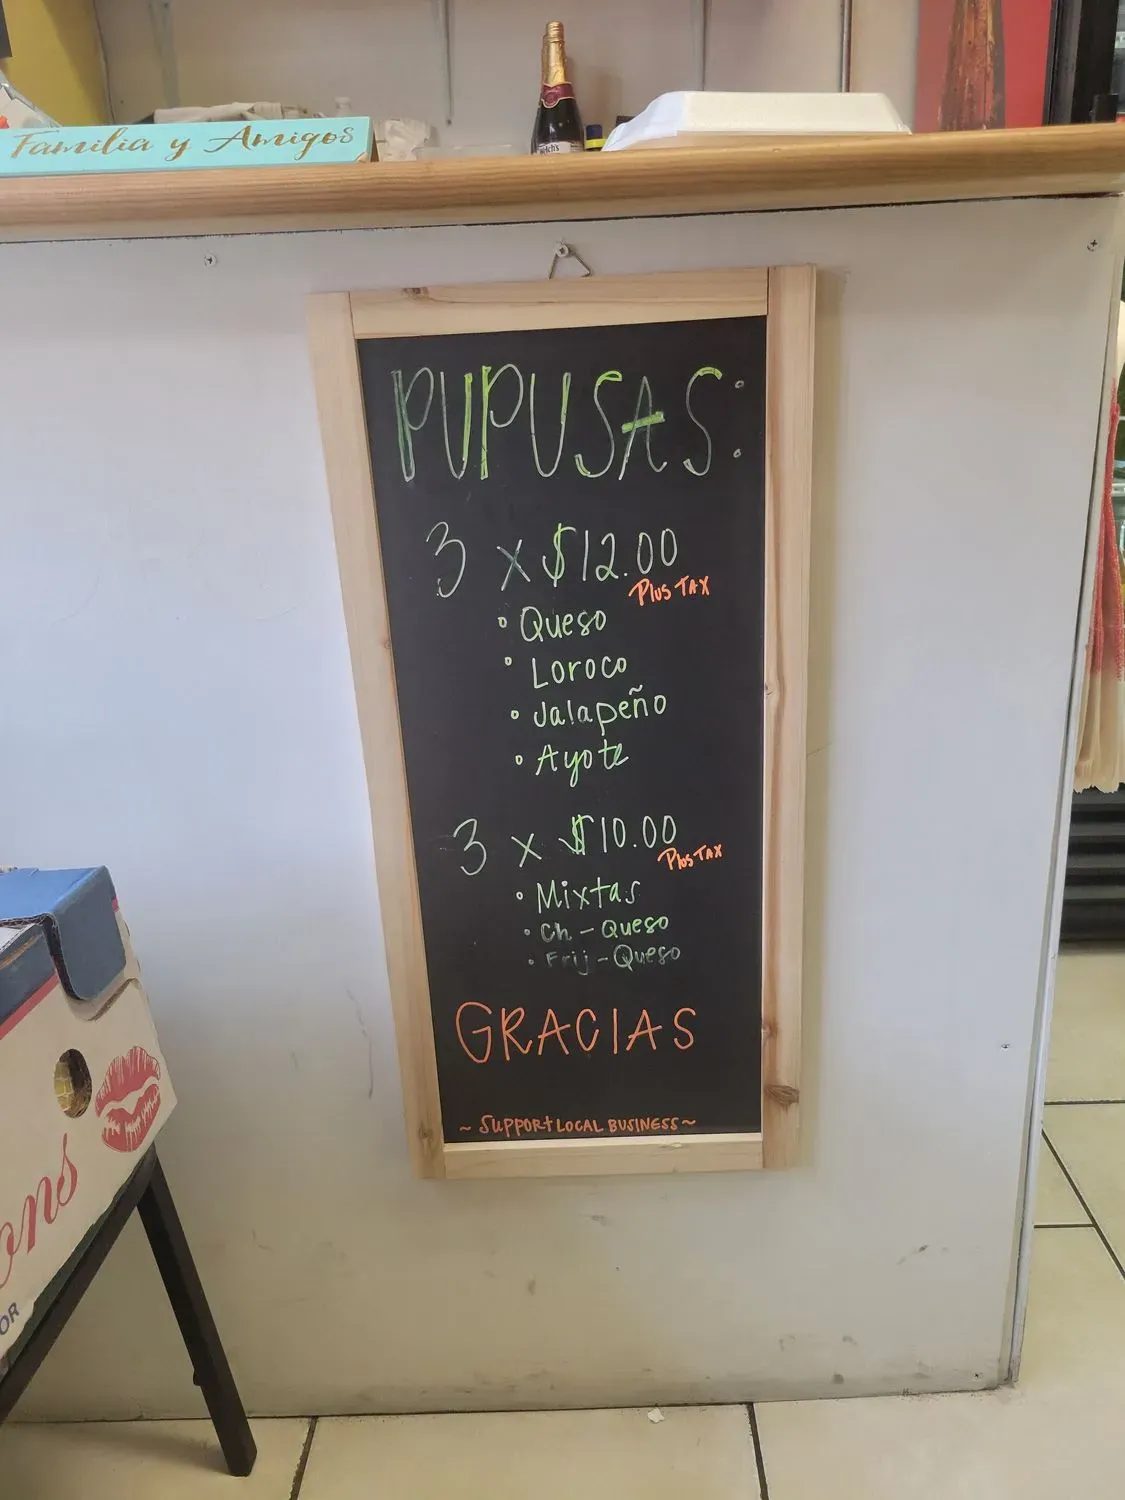 Familia y Amigos
Welch's
PUPUSAS:
3 x $12.00
Plus TAX
• Queso
• Loroco
• Jalapeño
• Ayote
3 x $10.00
Plus TAX
• Mixtas
• Ch - Queso
• Frij - Queso
GRACIAS
~ SUPPORt LOCAL BUSINESS ~
ons
OR